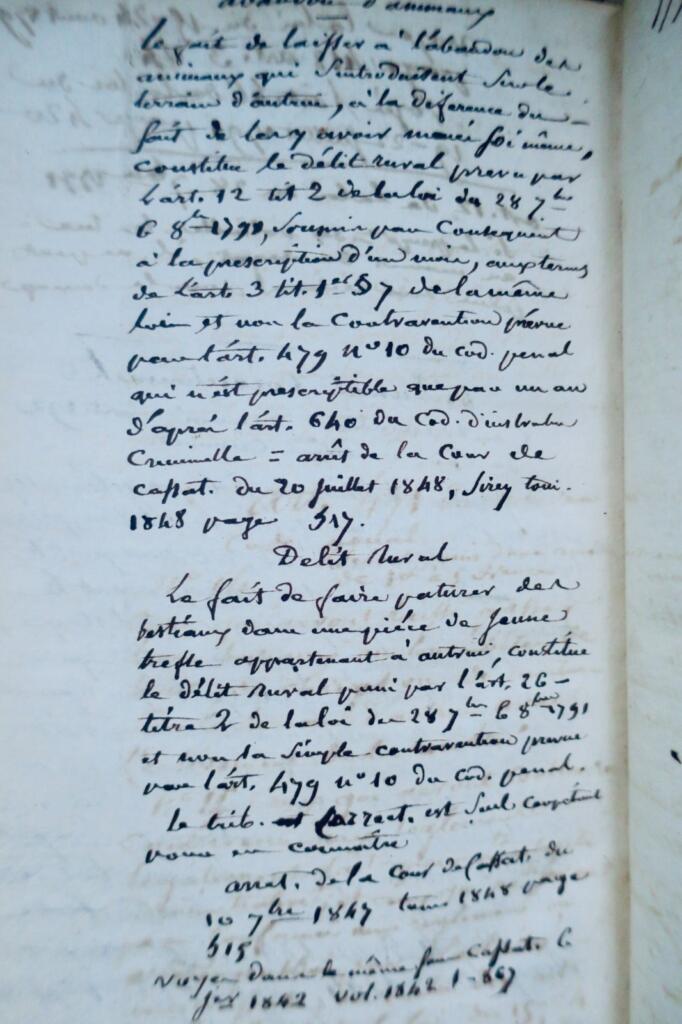 abandon d'animaux
le fait de laisser à l'abandon des
animaux qui s'introduisent sur le
terrain d'autrui, à la diference du
fait de les y avoir menés soi même,
constitue le délit rural prevu par
l'art. 12 tit 2 de la loi du 28 7bre
6 8bre 1791, soumis par consequent
à la prescription d'un mois, aux termes
de l'art. 3 tit. 1er § 7 de la même
loi et non la Contravention prévue
par l'art. 479 n° 10 du Cod. penal
qui n'est prescriptible que par un an
d'après l'art. 640 du Cod. d'instruction
Criminelle = arrêt de la Cour de
Cassat. du 20 juillet 1848, Sirey tom.
1848 page 517.
Delit Rural
Le fait de faire paturer des
bestiaux dans une pièce de jeune
trefle appartenant à autrui, constitue
le délit rural puni par l'art. 26
titre 2 de la loi du 28 7bre 6 8bre 1791
et non la simple contravention prevue
par l'art. 479 n° 10 du Cod. penal.
le trib. Correct. est seul compétent
pour en connaître
arret. de la Cour de Cassat. du
10 7bre 1847 tom. 1848 page
515
voyez dans le même sens Cassat. 6
1842 vol. 1842 1-867